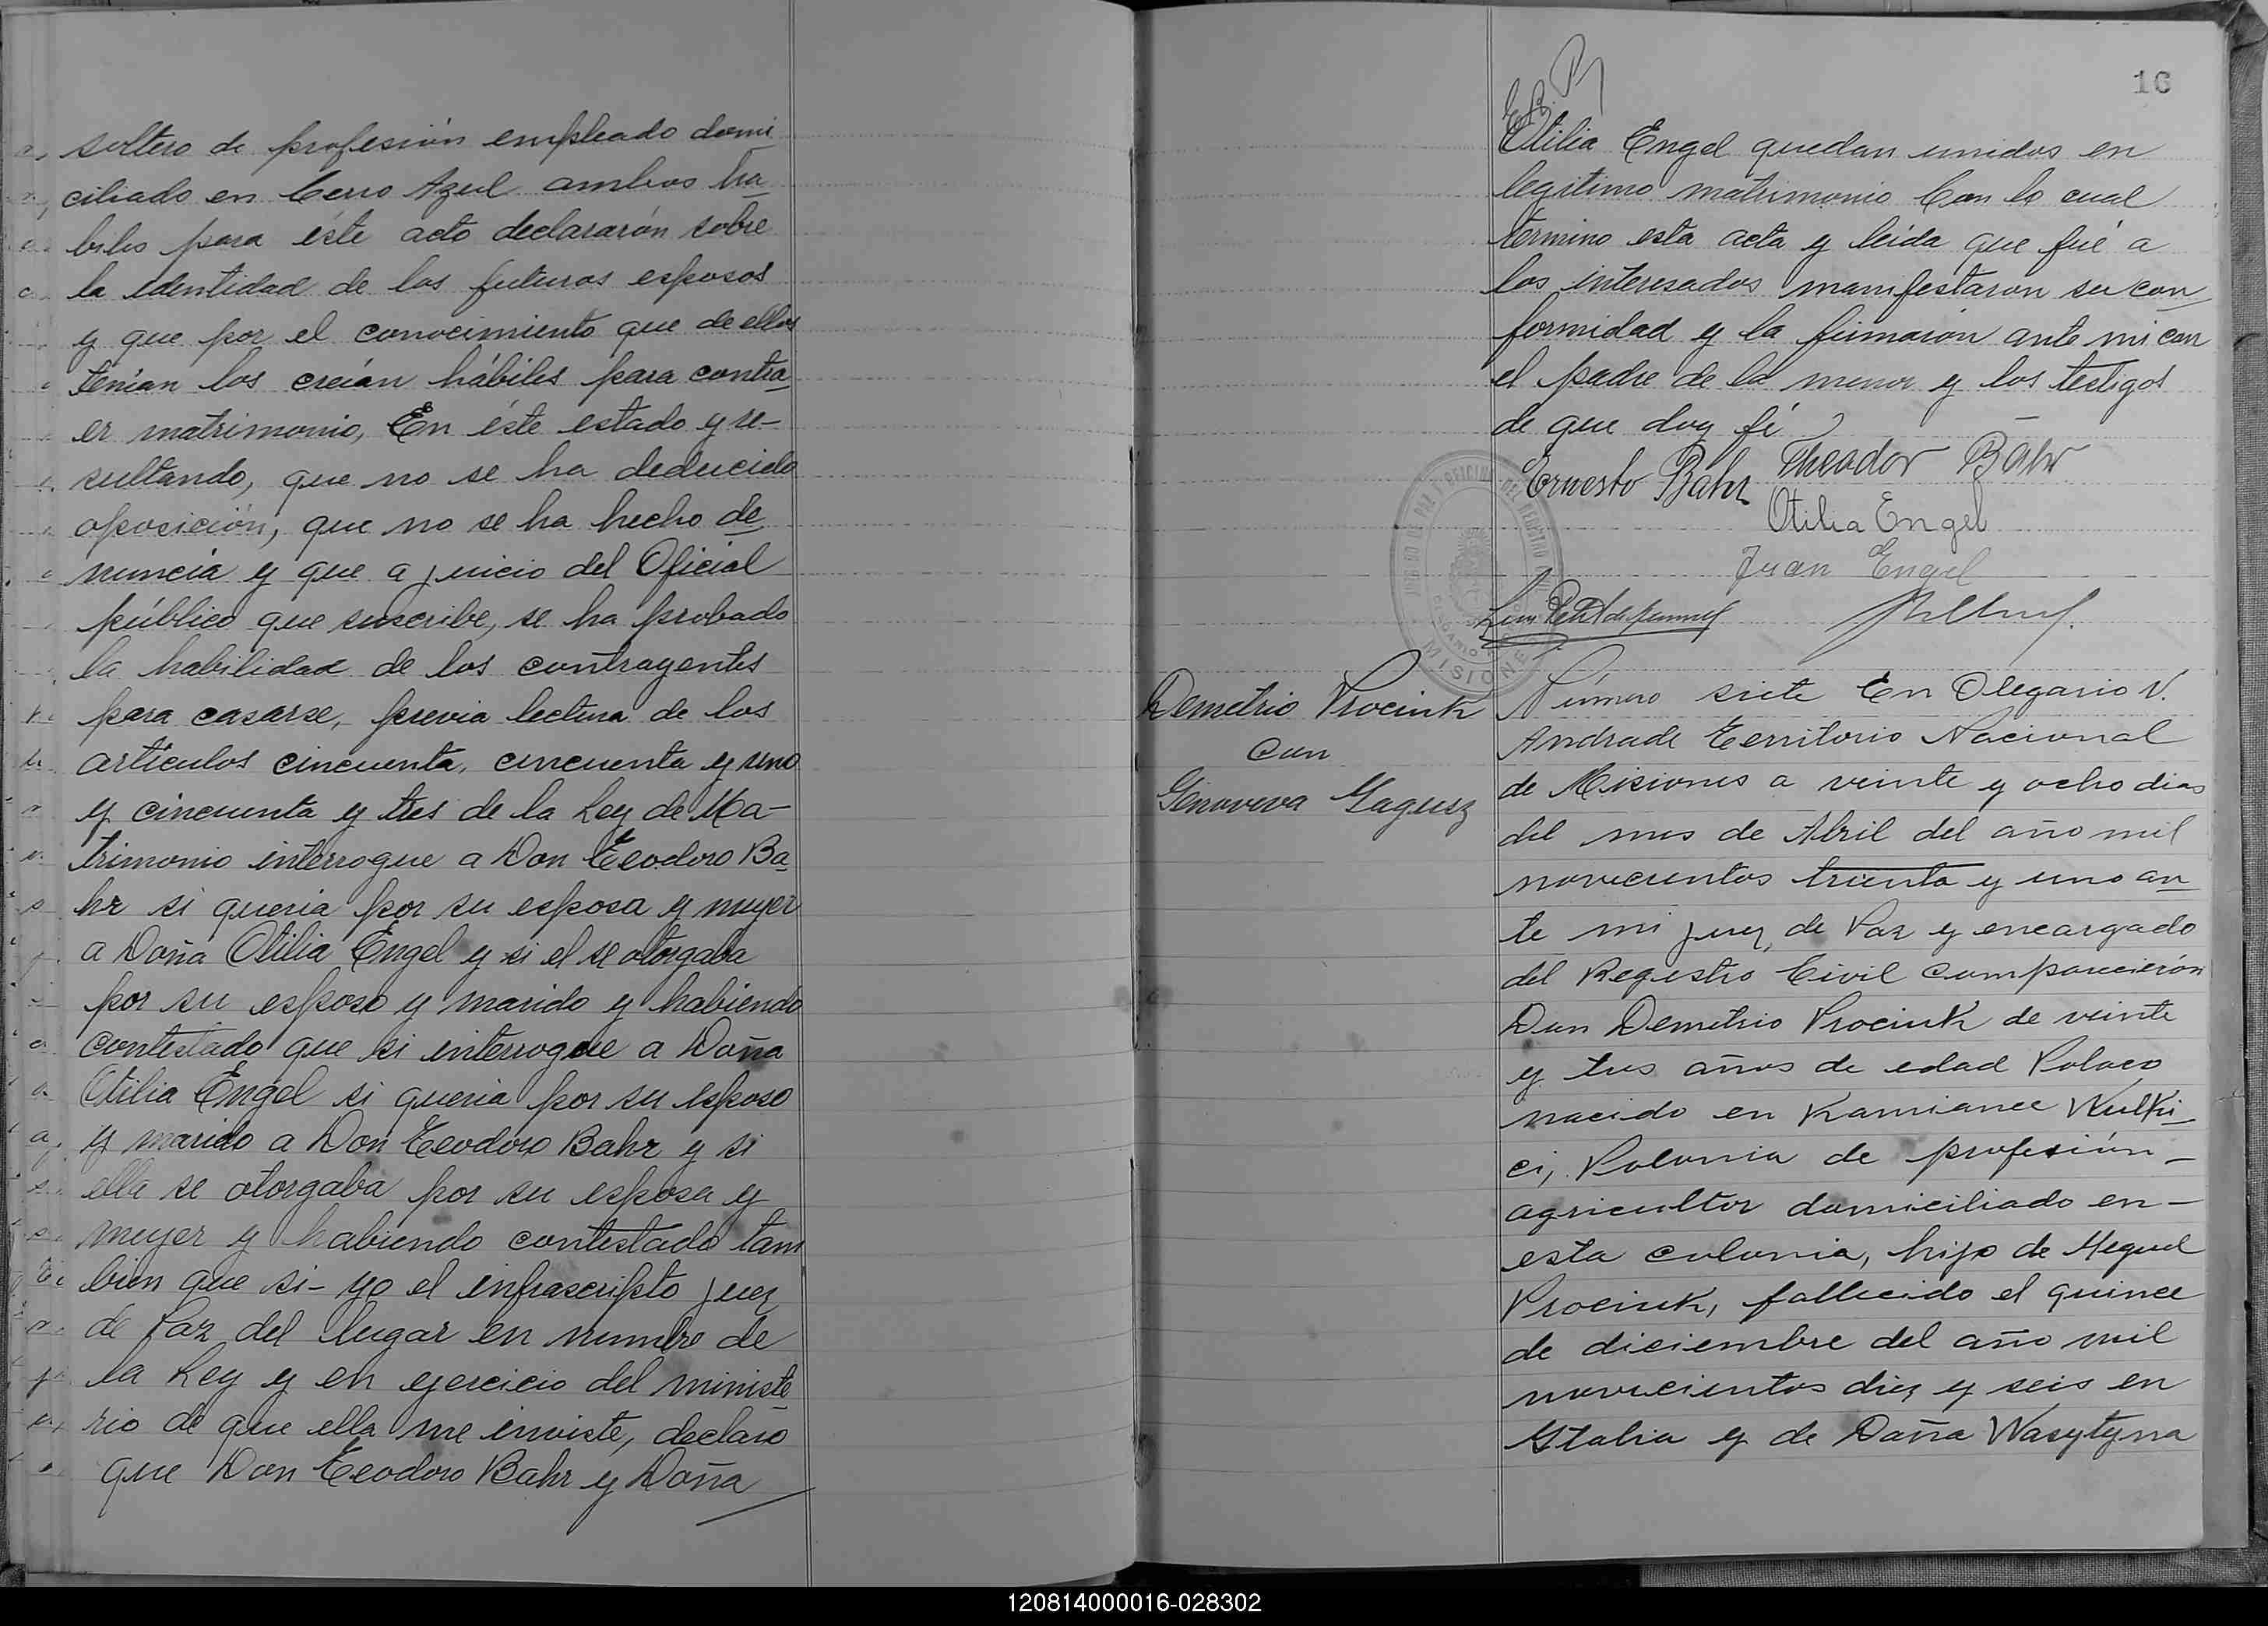 soltero de profesión empleado domi
ciliado en Cerro Azul ambos há
biles para éste acto declararón sobre
la identidad de los futuros esposos
y que por el conocimiento que de ellos
tenian los creián hábiles para contra
er matrimonio, En éste estado y re-
sultando, que no se ha deducido
oposición, que no se ha hecho de
nuncia y que a juicio del Oficial
público que suscribe, se ha probado
la habilidad de los contrayentes
para casarse, previa lectura de los
artículos cincuenta, cincuenta y uno
y cincuenta y tres de la Ley de Ma-
trimonio interrogue a Don Teodoro Ba
hr si queria por su esposa y mujer
a Doña Otilia Engel y si el se otorgaba
por su esposo y marido y habiendo
contestado que si interrogue a Doña
Otilia Engel si queria por su esposo
y marido a Don Teodoro Bahr y si
ella se otorgaba por su esposa y
mujer y habiendo contestado tam
bien que si- yo el infrascripto juez
de Paz del lugar en numbre de
la Ley y en ejercicio del ministe
rio de que ella me inviste, declaro
que Don Teodoro Bahr y Doña
16
Otilia Engel quedan unidos en
legitimo matrimonio Con lo cual
termino esta acta y leida que fué a
los interesados manifestaron su con
formidad y la firmarón ante mi con
el padre de la menor y los testigos
de que doy fé
Ernesto Bahr Theodor Bähr
Otilia Engel
Juan Engel
JUZGADO DE PAZ Y OFICINA DEL REGISTRO CIVIL
MISIONES
Demetrio Prociuk
con
Genoveva Gagusz
Número siete En Olegario V.
Andrade Territorio Nacional
de Misiones a veinte y ocho dias
del mes de Abril del año mil
novecientos treinta y uno an
te mi juez de Paz y encargado
del Registro Civil comparecierón
Don Demetrio Prociuk de veinte
y tres años de edad Polaco
nacido en Kamiance Wulki-
ci, Polonia de profesión-
agricultor domiciliado en-
esta colonia, hijo de Miguel
Prociuk, fallecido el quince
de diciembre del año mil
novecientos diez y seis en
Italia y de Doña Wasytyna
120814000016-028302